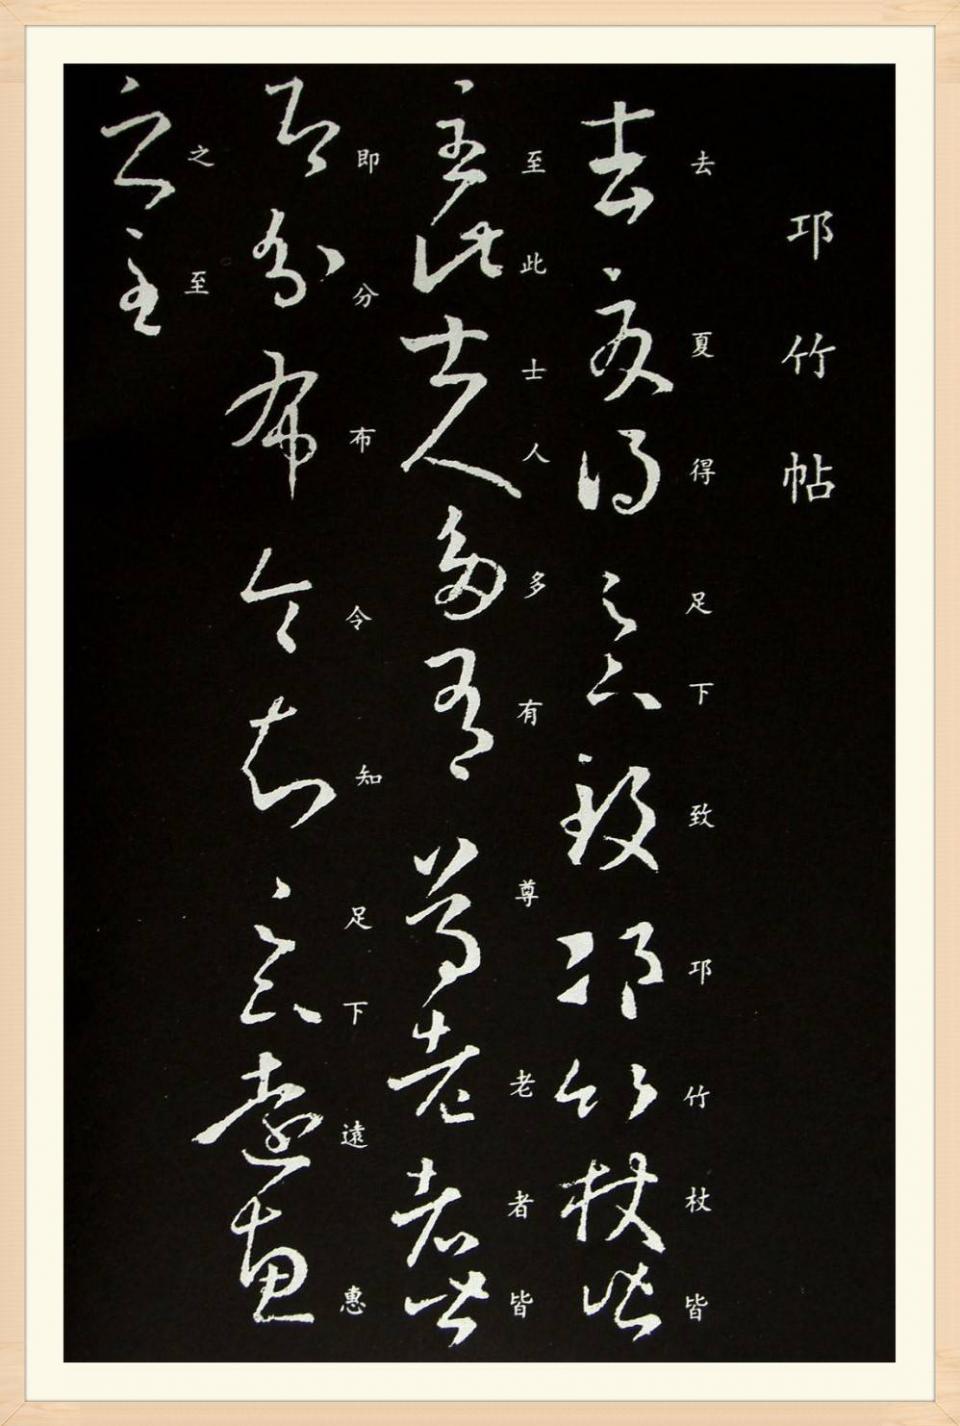 邛竹帖
去夏得足下致邛竹杖皆
至此士人多有尊老者皆
即分布令知足下遠惠
之至